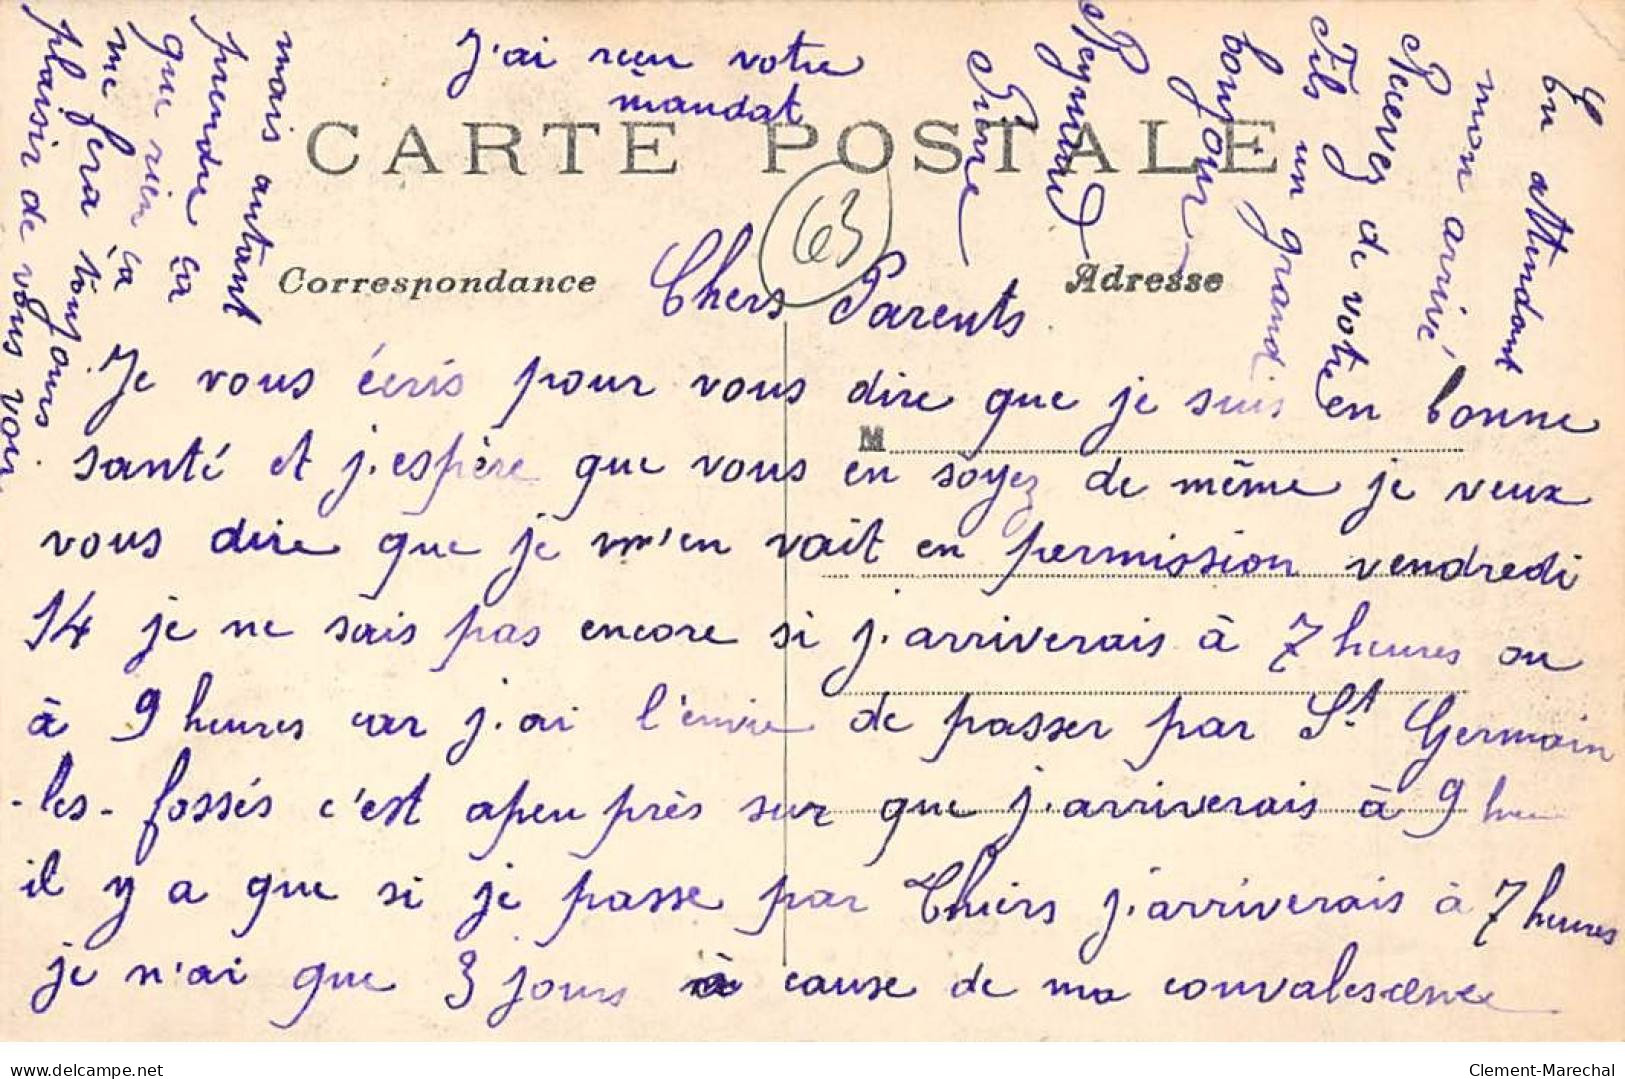 J'ai reçu votre
mandat
CARTE POSTALE
63
Correspondance
Adresse
M
Chers Parents
Je vous écris pour vous dire que je suis en bonne
santé et j.espère que vous en soyez de même je veux
vous dire que je m'en vait en permission vendredi
14 je ne sais pas encore si j.arriverais à 7 heures ou
à 9 heures car j.ai l'envie de passer par St Germain
-les- fossés c'est apeu près sur que j.arriverais à 9 heu
il y a que si je passe par Thiers j.arriverais à 7 heures
je n'ai que 3 jours à cause de ma convalescence
mais autant
prendre ça
que rien ça
me fera toujours
plaisir de vous voir.
En attendant
mon arrivé
Recevez de votre
Fils un grand
bonjour
Reymund
Pierre
delcampe.net
Clement-Marechal